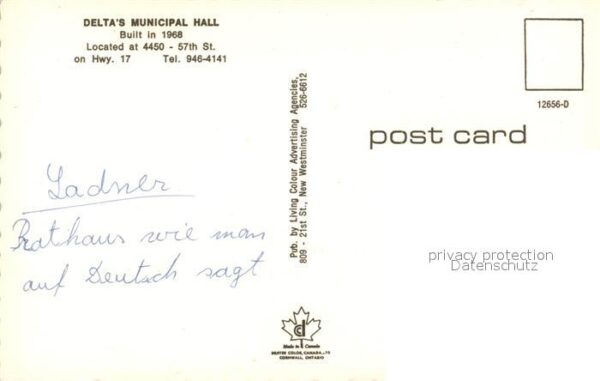 DELTA'S MUNICIPAL HALL
Built in 1968
Located at 4450 - 57th St.
on Hwy. 17 Tel. 946-4141
12656-D
post card
Ladner
Rathaus wie man
auf Deutsch sagt
Pub. by Living Colour Advertising Agencies,
809 - 21st St., New Westminster 526-6612
privacy protection
Datenschutz
Made in Canada
CORNWALL, ONTARIO